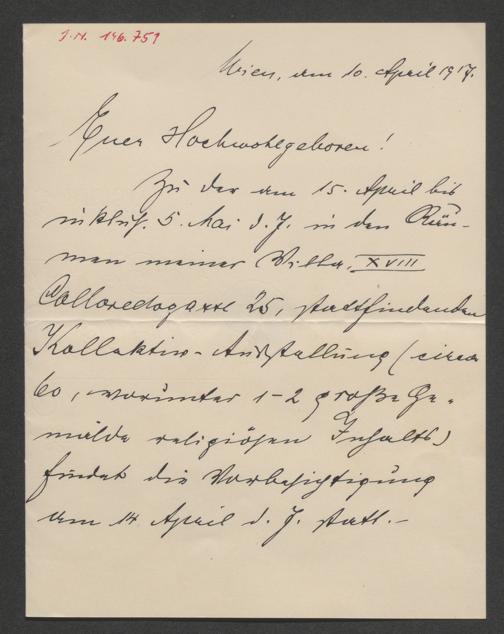 J.N. 146.751
Wien, am 10. April 1917.
Euer Hochwohlgeboren!
Zu der am 15. April bis
inklus. 5. Mai d. J. in den Räu-
men meiner Villa, XVIII
Colloredogasse 25, stattfindenden
Kollektiv-Ausstellung (circa
60, worunter 1-2 große Ge-
mälde religiösen Inhalts)
findet die Vorbesichtigung
am 14 April d. J. statt.-